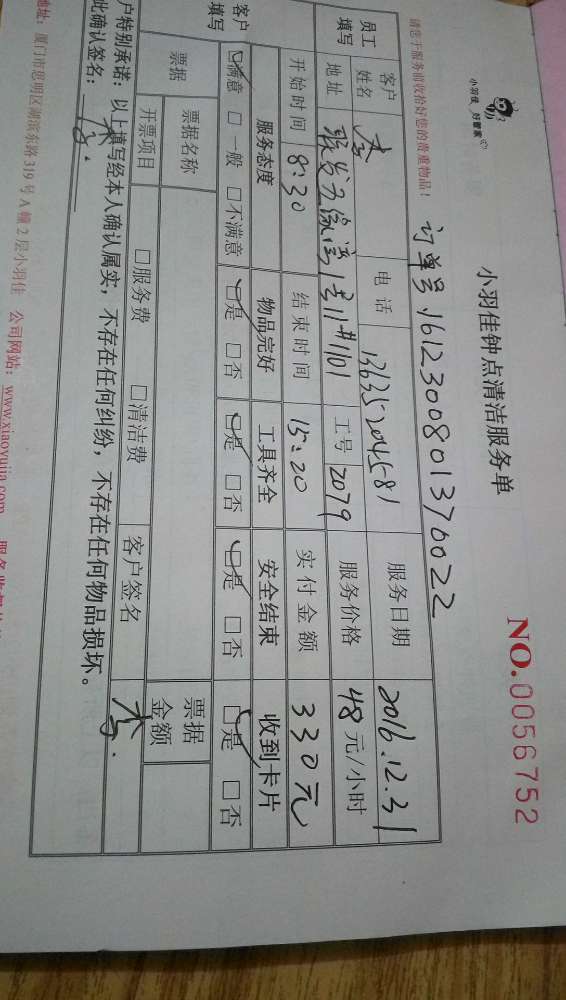 小羽佳 好管家
小羽佳钟点清洁服务单
NO.0056752
请您于服务前收拾好您的贵重物品!
订单号:1612300801370022
员工填写
客户姓名 李 电话 13635204581 服务日期 2016.12.31
地址 1号11#1101 工号 2079 服务价格 48元/小时
开始时间 8:30 结束时间 15:20 实付金额 330元
客户填写
服务态度 物品完好 工具齐全 安全结束 收到卡片
☑满意 □一般 □不满意 ☑是 □否 ☑是 □否 ☑是 □否 ☑是 □否
票据 票据名称 票据金额
开票项目 □服务费 □清洁费 客户签名 李
户特别承诺:以上填写经本人确认属实,不存在任何纠纷,不存在任何物品损坏。
此确认签名:李
地址:厦门市思明区湖滨东路319号A幢2层小羽佳 公司网站:www.xiaoyujia.com